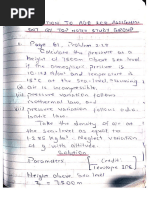 SOLUTION TO AGE 302 ASSIGNMENT
SET AS TOP NOTCH STUDY GROUP
1. Page 61, Problem 3.29
Calculate the pressure at a
height of 7500m above sea level
if the atmospheric pressure is
101.3 kN/m² and temperature is
15°C at the sea level, assuming
air is incompressible.
pressure variation follows
isothermal law, and
pressure variation follows adia-
batic law.
Take the density of air at
the sea-level as equal to
1.285 kg/m³. Neglect variation
of g with altitude.
Solution
Parameters
Height above sea level
z = 7500m